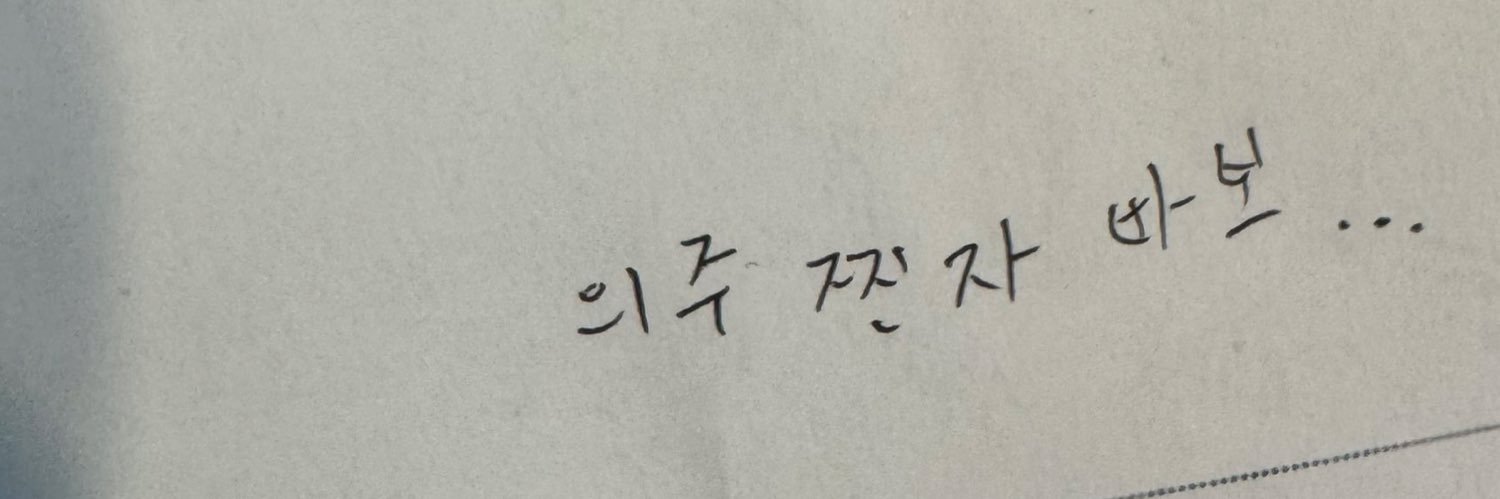 의주 찐자 바보...